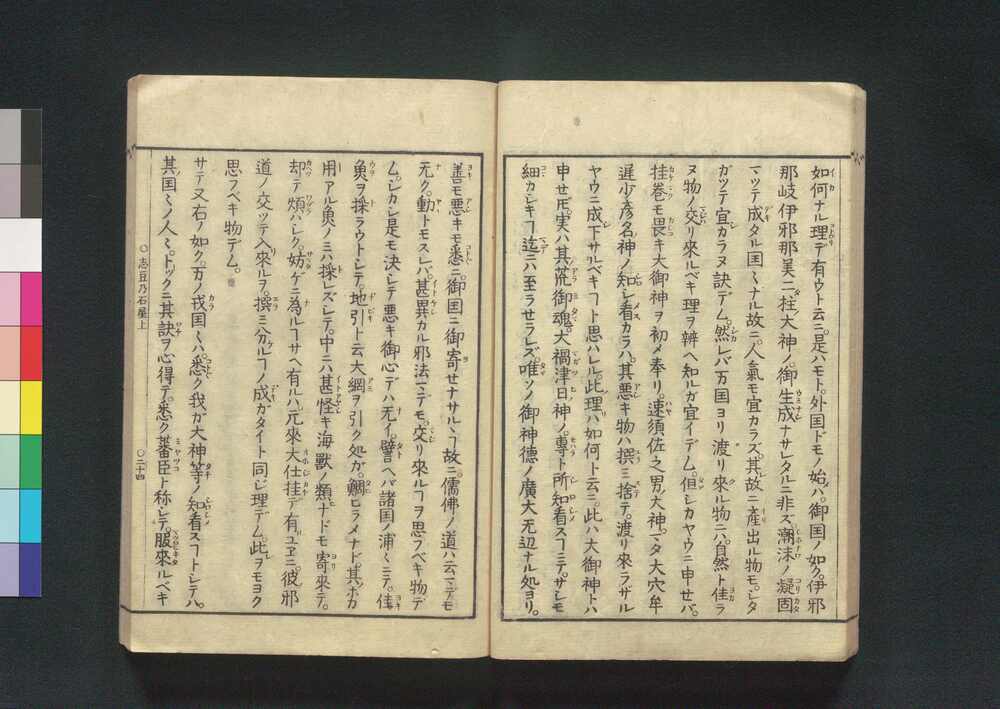 如何ナル理デ有ウト云ニ。是ハモト。外国ドモノ始ハ。御国ノ如ク。伊邪
那岐伊邪那美ニ柱大神ノ。御生成ナサレタルニ非ズ。潮沫ノ凝固
マツテ成タル国ミナル故ニ。人氣モ宜カラズ。其故ニ產出ル物モ。シタ
ガツテ宜カラヌ訣デム。然レバ万国ヨリ渡リ來ル物ニハ。自然ト佳ラ
ヌ物ノ交リ來ルベキ理ヲ辨ヘ知ルガ宜イデム。但シカヤウニ申セバ。
挂巻モ畏キ大御神ヲ初メ奉リ。速須佐之男大神。マタ大穴牟
遅少彦名神ノ知シ看スカラハ。其悪キ物ハ撰ミ捨テ。渡リ來ラザル
ヤウニ成下サルベキヿト思ハレル。此理ハ如何ト云ニ。此ハ大御神トハ
申セ𪜈。実ハ其荒御魂。大禍津日神ノ。專ト所知看スヿニテ。サシモ
細カシキヿ迄ニハ至ラセラレズ。唯ソノ御神德ノ廣大无辺ナル処ヨリ。
善モ悪キモ悉ニ御国ニ御寄セナサルヽヿ故ニ。儒佛ノ道ハ云マデモ
无ク。動トモスレバ。甚異カル邪法マデモ。交リ來ルヿヲ思フベキ物デ
ム。シカシ是モ決シテ悪キ御心デハ无イ。譬ヘバ諸国ノ浦ミニテ。佳
魚ヲ採ラウトシテ。地引ト云大網ヲ引ク処ガ。鯛ヒラメナド。其ホカ
用アル魚ノミハ採レズシテ。中ニハ甚怪キ海獸ノ類ナドモ寄來テ。
却テ煩ハシク。妨ゲニ爲ルヿサヘ有ルハ。元來大仕挂デ有ルユヱニ。彼邪
道ノ交ツテ入來ルヲ。撰ミ分ケルヿノ成ガタイト同ジ理デム。此レヲモヨク
思フベキ物デム。
サテ又右ノ如ク。万ノ戎国ミハ。悉ク我ガ大神等ノ知看スヿトシテハ。
其国ミノ人ミ。トックニ其訣ヲ心得テ。悉ク蕃臣ト称シテ。服來ルベキ
○志豆乃石屋上
○二十四